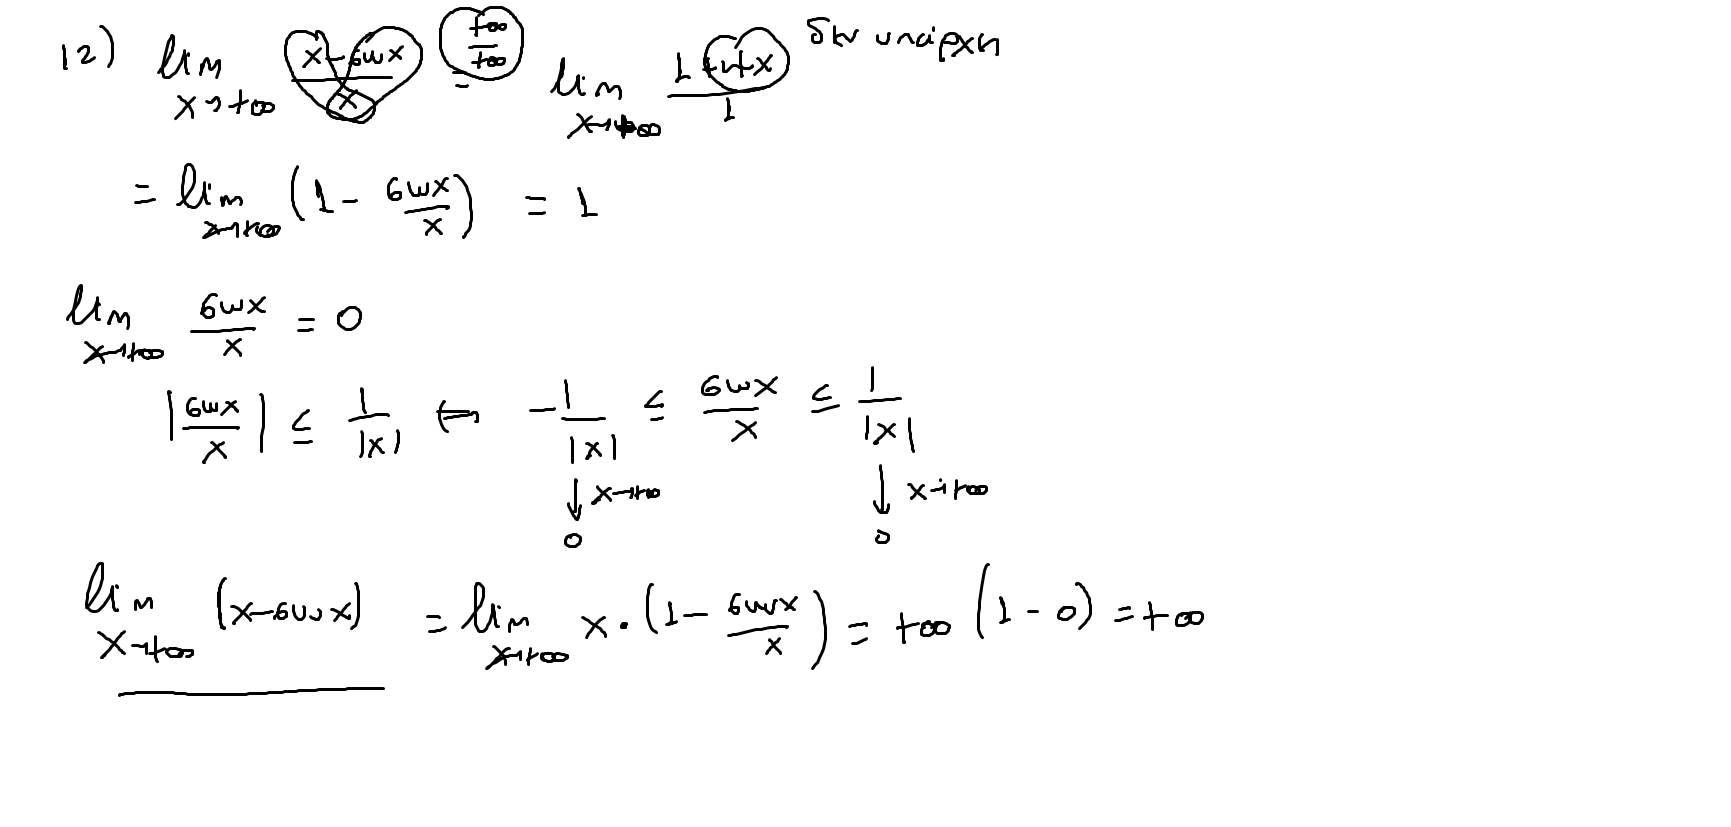 12) lim x→+∞ (x-συνx)/x = (+∞/+∞) lim x→+∞ (1+ημx)/1 δεν υπάρχει
= lim x→+∞ (1 - συνx/x) = 1
lim x→+∞ συνx/x = 0
|συνx/x| ≤ 1/|x| ⇔ -1/|x| ≤ συνx/x ≤ 1/|x|
↓ x→+∞ ↓ x→+∞
0 0
lim x→+∞ (x-συνx) = lim x→+∞ x·(1 - συνx/x) = +∞(1-0) = +∞